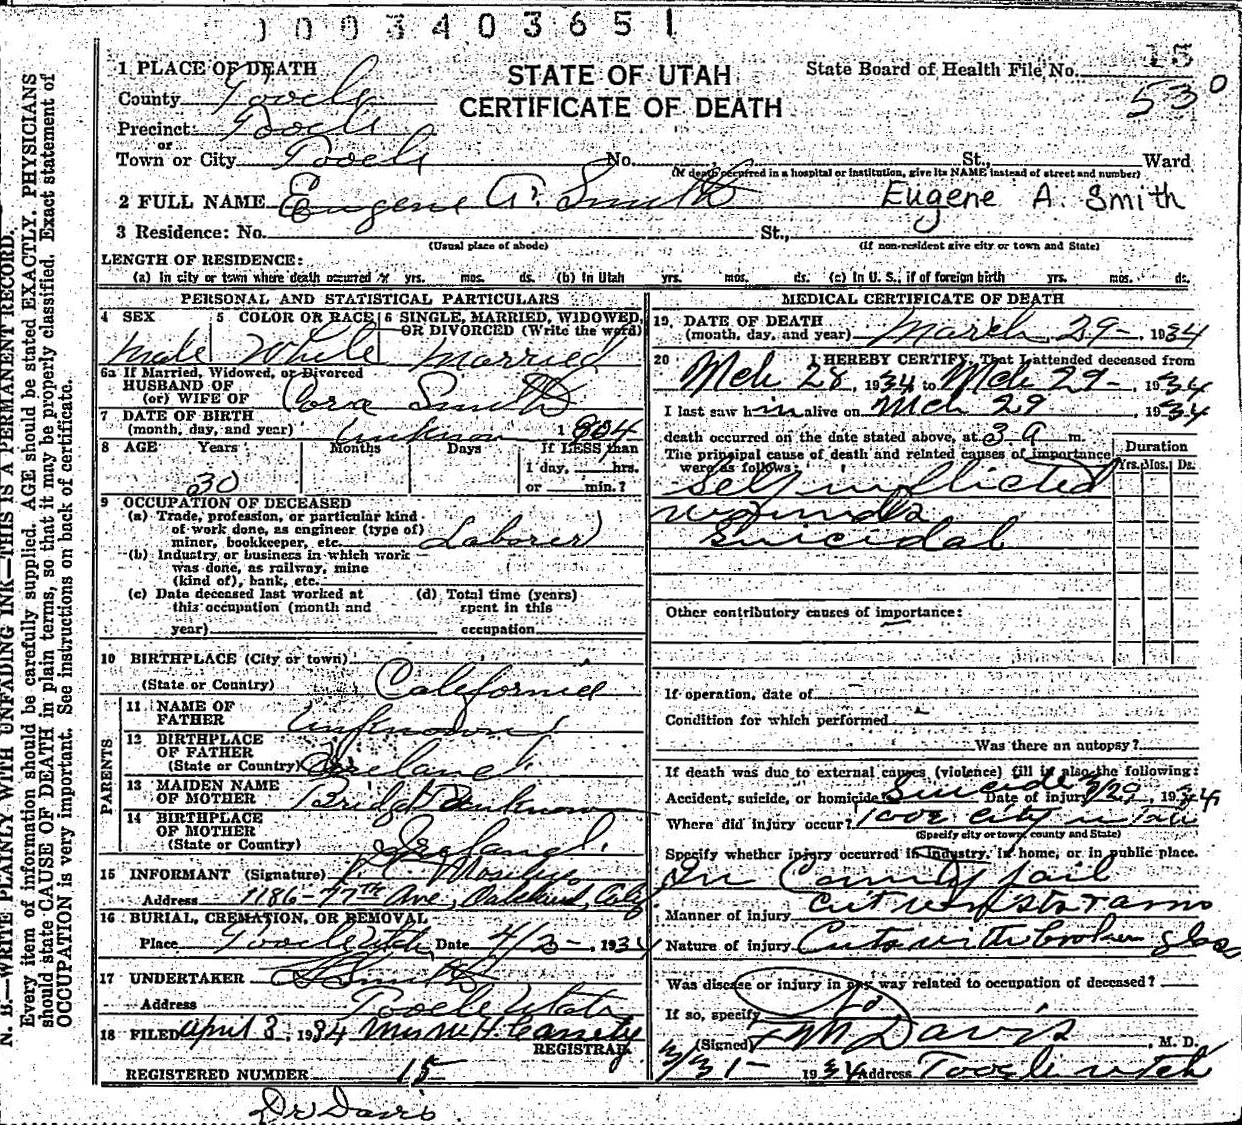 1003403651
STATE OF UTAH
CERTIFICATE OF DEATH
State Board of Health File No. 15
530
1 PLACE OF DEATH
County Tooele
Precinct Tooele
or
Town or City Tooele No. St., Ward
(If death occurred in a hospital or institution, give its NAME instead of street and number)
2 FULL NAME Eugene A. Smith Eugene A. Smith
3 Residence: No. St.,
(Usual place of abode) (If non-resident give city or town and State)
LENGTH OF RESIDENCE:
(a) In city or town where death occurred yrs. mos. ds. (b) In Utah yrs. mos. ds. (c) In U. S., if of foreign birth yrs. mos. ds.
PERSONAL AND STATISTICAL PARTICULARS
4 SEX 5 COLOR OR RACE 6 SINGLE, MARRIED, WIDOWED,
OR DIVORCED (Write the word)
Male White Married
6a If Married, Widowed, or Divorced
HUSBAND OF
(or) WIFE OF Cora Smith
7 DATE OF BIRTH
(month, day, and year) Unknown 1904
8 AGE Years Months Days If LESS than
1 day, hrs.
or min.?
30
9 OCCUPATION OF DECEASED
(a) Trade, profession, or particular kind
of work done, as engineer (type of)
miner, bookkeeper, etc. Laborer
(b) Industry or business in which work
was done, as railway, mine
(kind of), bank, etc.
(c) Date deceased last worked at (d) Total time (years)
this occupation (month and spent in this
year) occupation
10 BIRTHPLACE (City or town)
(State or Country) California
PARENTS
11 NAME OF
FATHER Unknown
12 BIRTHPLACE
OF FATHER
(State or Country) Ireland
13 MAIDEN NAME
OF MOTHER Bridget Unknown
14 BIRTHPLACE
OF MOTHER
(State or Country) Ireland
15 INFORMANT (Signature)
Address 1186-77th Ave, Oakland, Calif
16 BURIAL, CREMATION, OR REMOVAL
Place Tooele Utah Date 4/3-, 1934
17 UNDERTAKER Smith
Address Tooele Utah
18 FILED April 3, 1934 Mrs W. H. Cassity
REGISTRAR
REGISTERED NUMBER 15
Dr Davis
MEDICAL CERTIFICATE OF DEATH
19. DATE OF DEATH
(month, day, and year) March 29-, 1934
20 I HEREBY CERTIFY, That I attended deceased from
Mch 28, 1934 to Mch 29-, 1934
I last saw him alive on Mch 29, 1934
death occurred on the date stated above, at 3 a m.
The principal cause of death and related causes of importance
were as follows:
Duration
Yrs. Mos. Ds.
Self inflicted
wounds
Suicidal
Other contributory causes of importance:
If operation, date of
Condition for which performed
Was there an autopsy?
If death was due to external causes (violence) fill in also the following:
Accident, suicide, or homicide Suicide Date of injury 3/29, 1934
Where did injury occur? Tooele City Utah
(Specify city or town, county and State)
Specify whether injury occurred in industry, in home, or in public place.
In County Jail
Manner of injury cut
Nature of injury Cuts with broken glass
Was disease or injury in any way related to occupation of deceased?
If so, specify No
(Signed) M Davis, M. D.
3/31- 1934 Address Tooele Utah
N. B.—WRITE PLAINLY WITH UNFADING INK—THIS IS A PERMANENT RECORD.
Every item of information should be carefully supplied. AGE should be stated EXACTLY. PHYSICIANS
should state CAUSE OF DEATH in plain terms, so that it may be properly classified. Exact statement of
OCCUPATION is very important. See instructions on back of certificate.